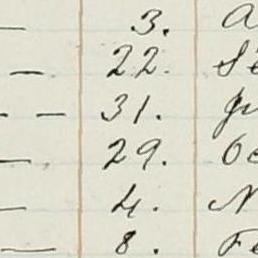 — 3. A
— 22. Se
— — 31. Ju
— 29. Oc
— 4. N
— 8. Fe